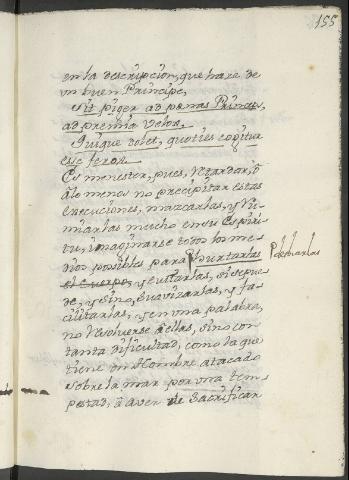 155
en la descripcion, que hare de
un buen Principe,
Sit piger ad pœnas Princeps,
ad premia Velox.
Quique dolet, quoties cogitur
esse ferox.
Es menester, pues, retardar, ò
àlo menos no precipitar estas
execuciones, mazcarlas, y Ru-
miarlas mucho en su Espiri-
tu, imaginarse todos los me-
dios posibles para hurtarlas
el cuerpo, y evitarlas, si se pue-
de, y sino, suavizarlas, y fa-
cilitarlas, y en una palabra,
no resolverse à ellas, sino con
tanta dificultad, como la que
tiene un Hombre atacado
sobre la mar por una tem-
pestad, à aver de sacrificar